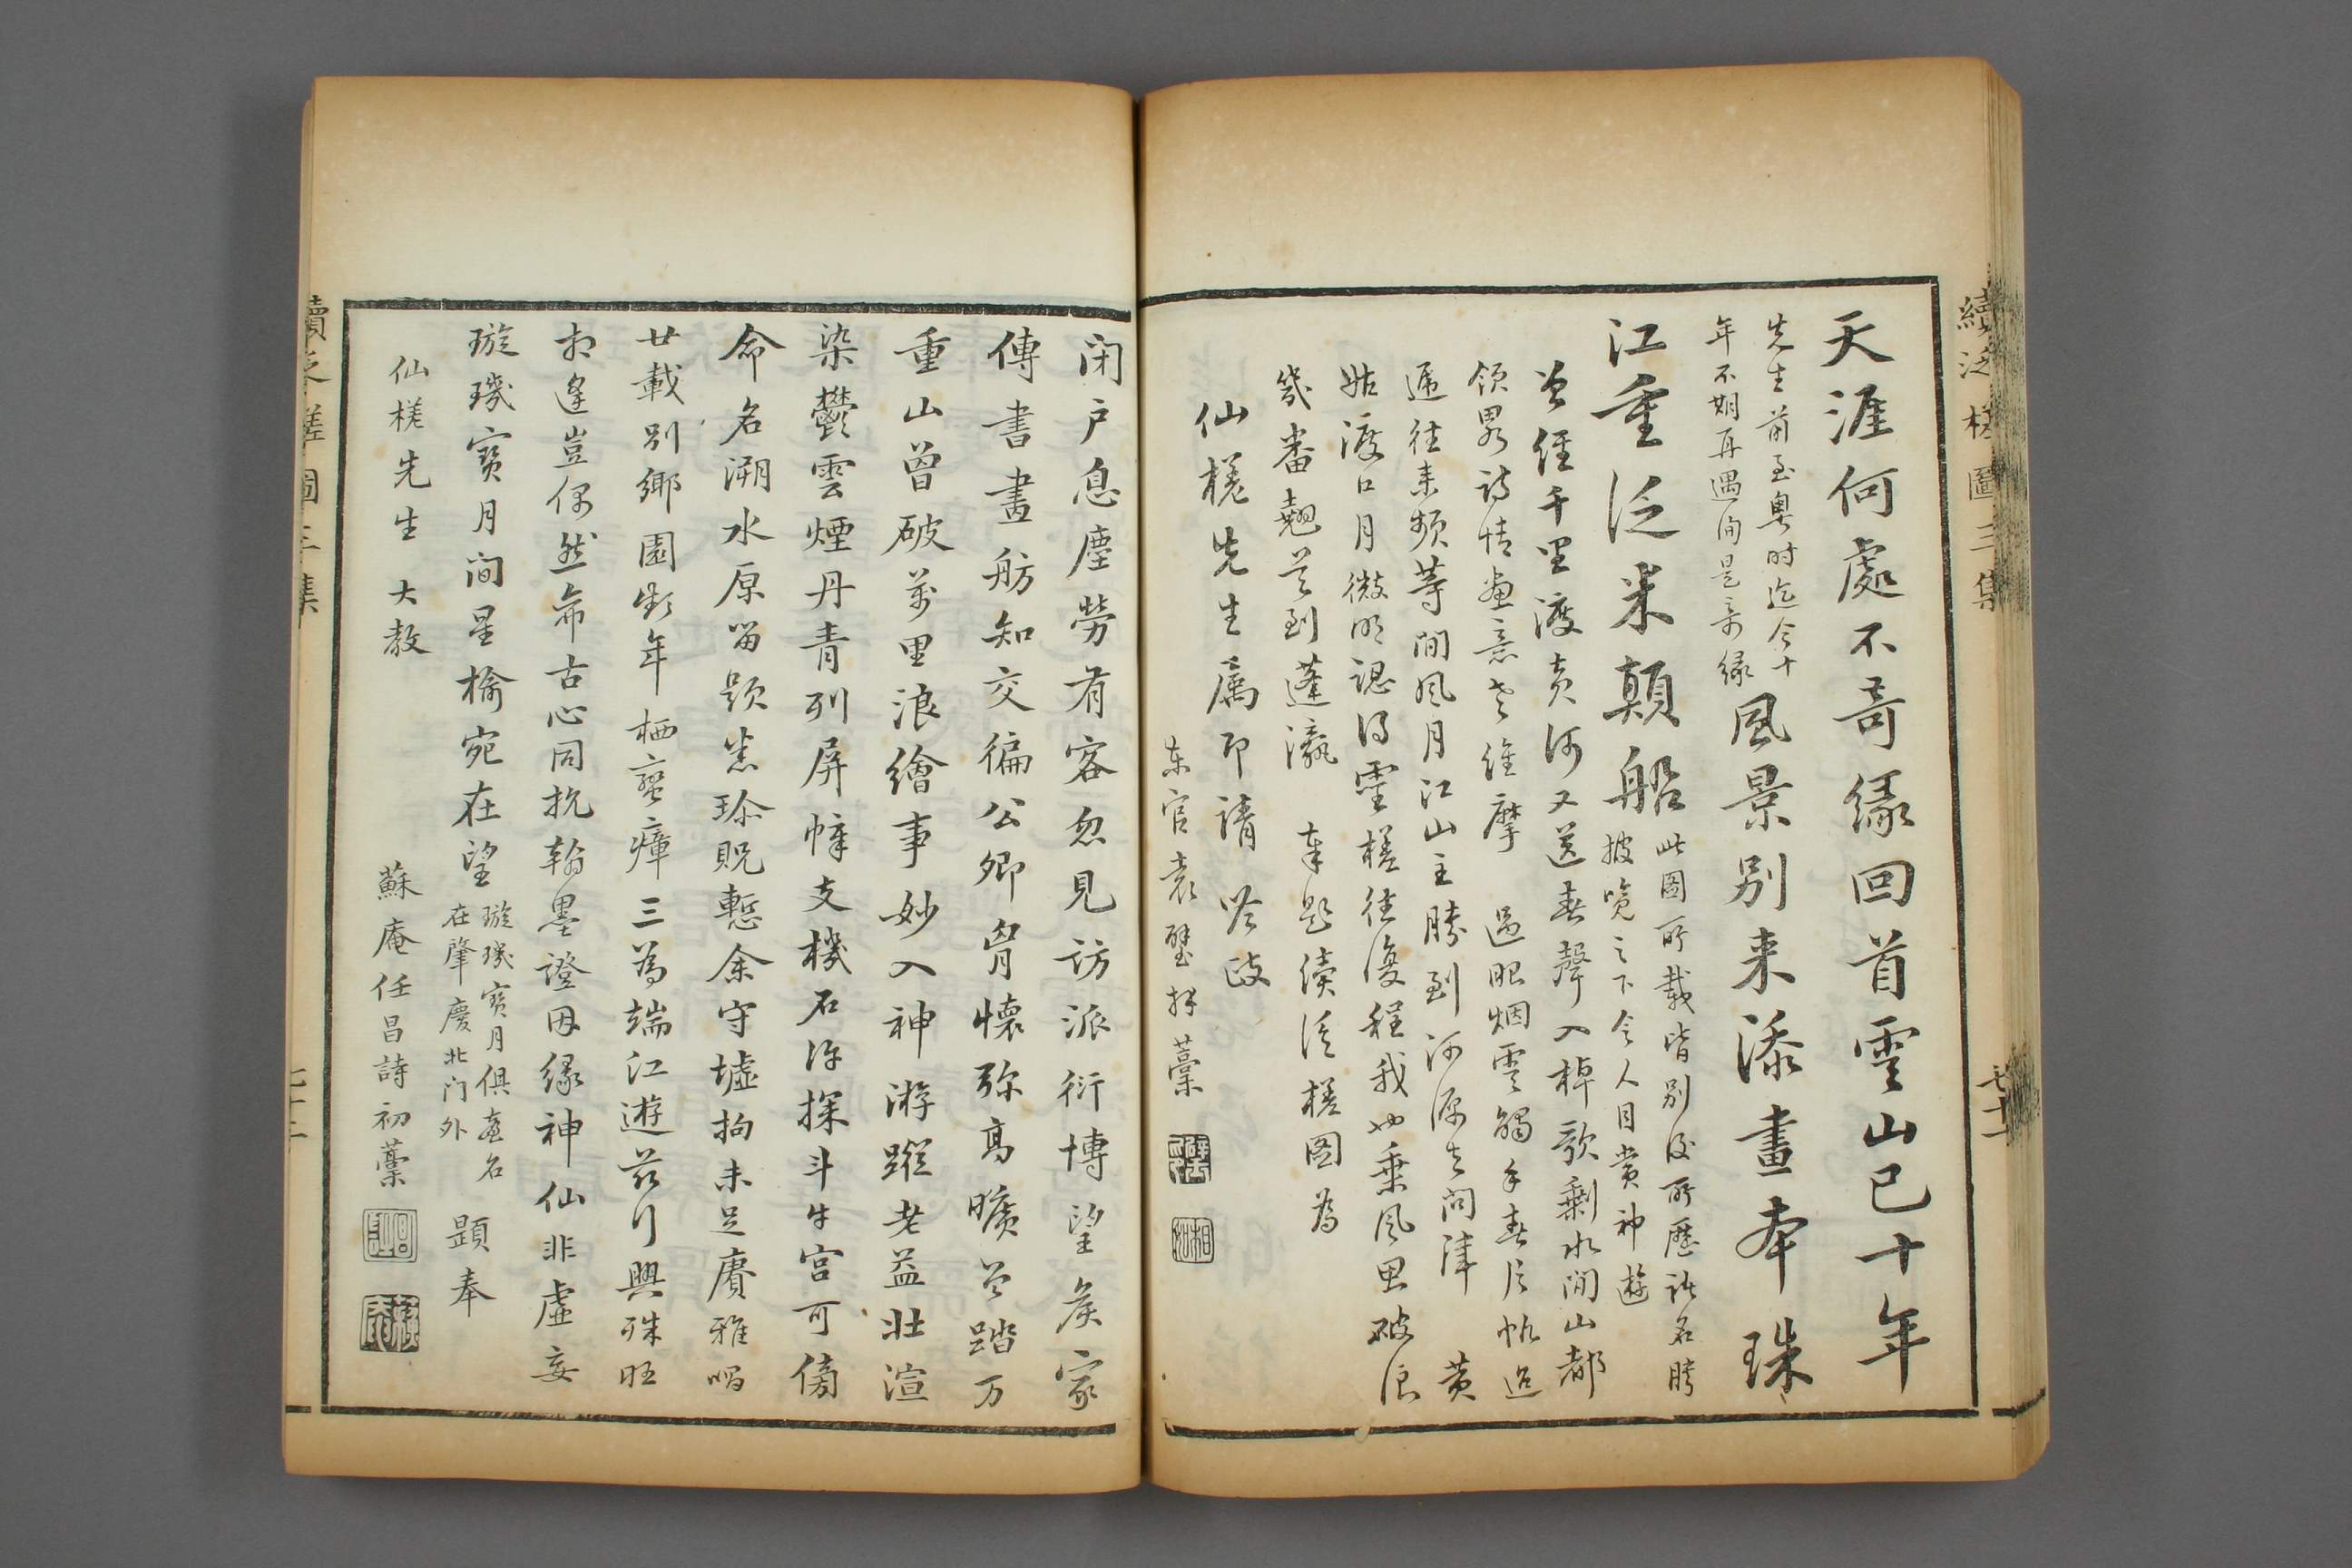 續泛槎圖三集
天涯何處不奇緣回首雲山已十年
先生前至粵時迄今十
年不期再遇洵是奇緣
風景別來添畫本珠
江重泛米顛船
此圖所載皆別後所歷諸名勝
披覽之下令人目賞神遊
曾經千里渡黃河又送春聲入棹歌剩水間山都
領畧詩情畫意老維摩 過眼烟雲觸手春片帆迢
遞往來頻等閒風月江山主勝到河源去問津 黃
姑渡口月微明認得星槎往復程我也乘風思破浪
幾番翹首到蓬瀛 奉題續泛槎圖為
仙槎先生屬即請 哈政
東官袁璧拜藁
閉户息塵勞有客忽見訪派衍博望矦家
傳書畫舫知交徧公卿胷懷弥高曠曾踏万
重山曾破萬里浪繪事妙入神游蹤老益壯渲
染鬱雲煙丹青列屏幛支機石復探斗牛宮可傍
命名溯水原留題荷珍貺慙余守墟拘未足賡雅唱
廿載別鄉園歲年栖蠻瘴三為端江遊茲行興殊旺
相逢豈偶然希古心同抗翰墨證因緣神仙非虛妄
璇璣寶月間星榆宛在望
璇璣寶月俱臺名
在肇慶北门外
題奉
仙槎先生 大教
蘇庵任昌詩初藁
續泛槎圖三集